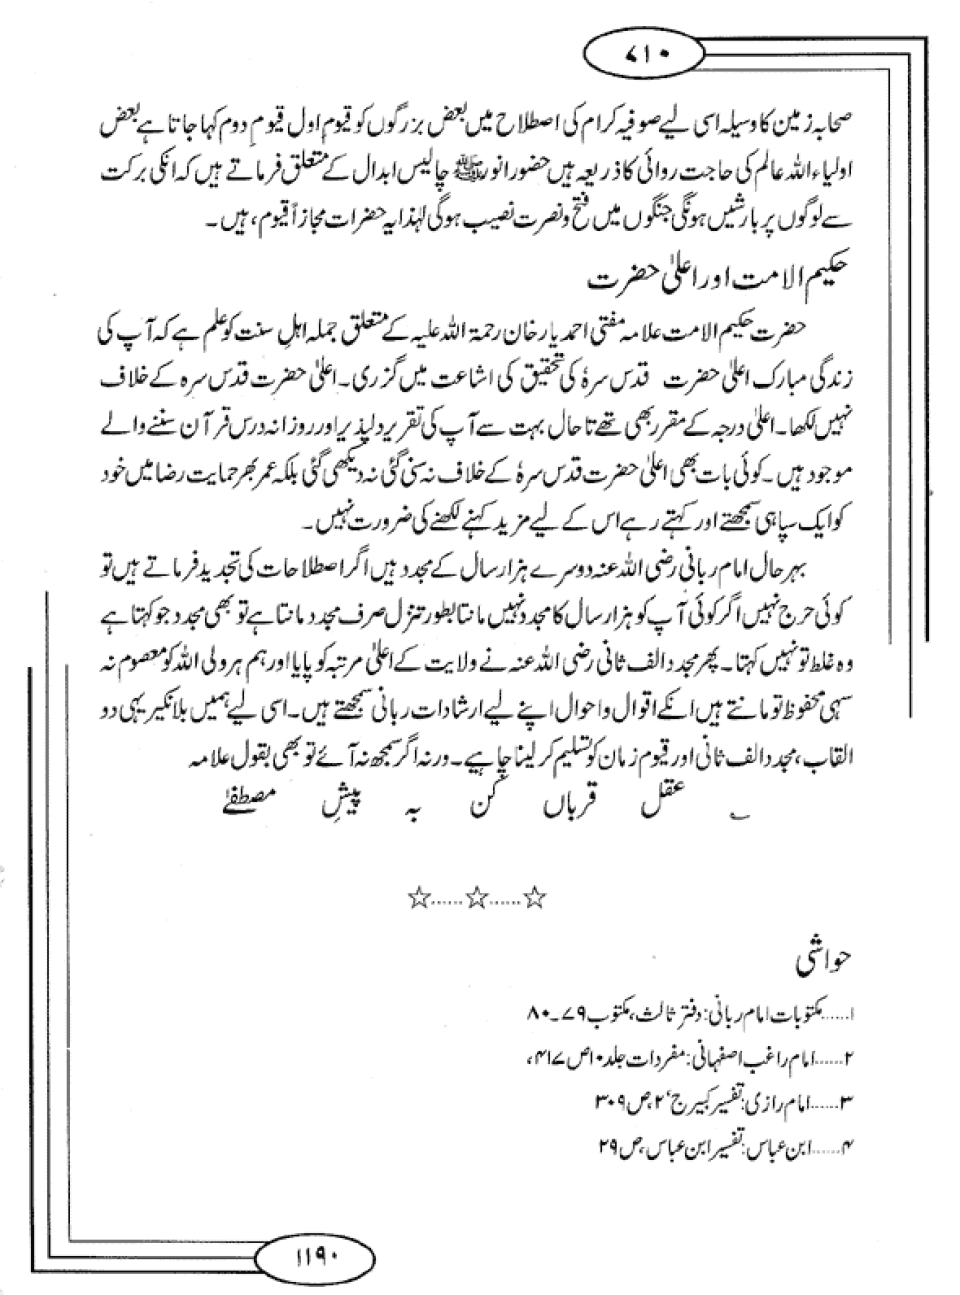 ۷۱۰
صحابہ زمین کا وسیلہ اسی لیے صوفیہ کرام کی اصطلاح میں بعض بزرگوں کو قیوم اول قیومِ دوم کہا جاتا ہے بعض
اولیاء اللہ عالم کی حاجت روائی کا ذریعہ ہیں حضور انور ﷺ چالیس ابدال کے متعلق فرماتے ہیں کہ انکی برکت
سے لوگوں پر بارشیں ہونگی جنگوں میں فتح و نصرت نصیب ہوگی لہٰذا یہ حضرات مجازاً قیوم، ہیں۔
حکیم الامت اور اعلیٰ حضرت
حضرت حکیم الامت علامہ مفتی احمد یار خان رحمۃ اللہ علیہ کے متعلق جملہ اہلِ سنت کو علم ہے کہ آپ کی
زندگی مبارک اعلیٰ حضرت قدس سرہٗ کی تحقیق کی اشاعت میں گزری۔ اعلیٰ حضرت قدس سرہ کے خلاف
نہیں لکھا۔ اعلیٰ درجہ کے مقرر بھی تھے تا حال بہت سے آپ کی تقریر دلپذیر اور روزانہ درس قرآن سننے والے
موجود ہیں۔ کوئی بات بھی اعلیٰ حضرت قدس سرہٗ کے خلاف نہ سنی گئی نہ دیکھی گئی بلکہ عمر بھر حمایت رضا میں خود
کو ایک سپاہی سمجھتے اور کہتے رہے اس کے لیے مزید کہنے لکھنے کی ضرورت نہیں۔
بہر حال امام ربانی رضی اللہ عنہ دوسرے ہزار سال کے مجدد ہیں اگر اصطلاحات کی تجدید فرماتے ہیں تو
کوئی حرج نہیں اگر کوئی آپ کو ہزار سال کا مجدد نہیں مانتا بطور تنزل صرف مجدد مانتا ہے تو بھی مجدد جو کہتا ہے
وہ غلط تو نہیں کہتا۔ پھر مجدد الف ثانی رضی اللہ عنہ نے ولایت کے اعلیٰ مرتبہ کو پایا اور ہم ہر ولی اللہ کو معصوم نہ
سہی محفوظ تو مانتے ہیں انکے اقوال و احوال اپنے لیے ارشادات ربانی سمجھتے ہیں۔ اسی لیے ہمیں بلا نکیر یہی دو
القاب، مجدد الف ثانی اور قیوم زمان کو تسلیم کر لینا چاہیے۔ ورنہ اگر سمجھ نہ آئے تو بھی بقول علامہ
؎ عقل قرباں کن بہ پیشِ مصطفےٰ
☆......☆......☆
حواشی
۱......مکتوبات امام ربانی: دفتر ثالث، مکتوب ۷۹۔۸۰
۲......امام راغب اصفہانی: مفردات جلد۱۰ص۴۱۷،
۳......امام رازی: تفسیر کبیر ج ۲، ص ۳۰۹
۴......ابن عباس: تفسیر ابن عباس، ص ۲۹
۱۱۹۰